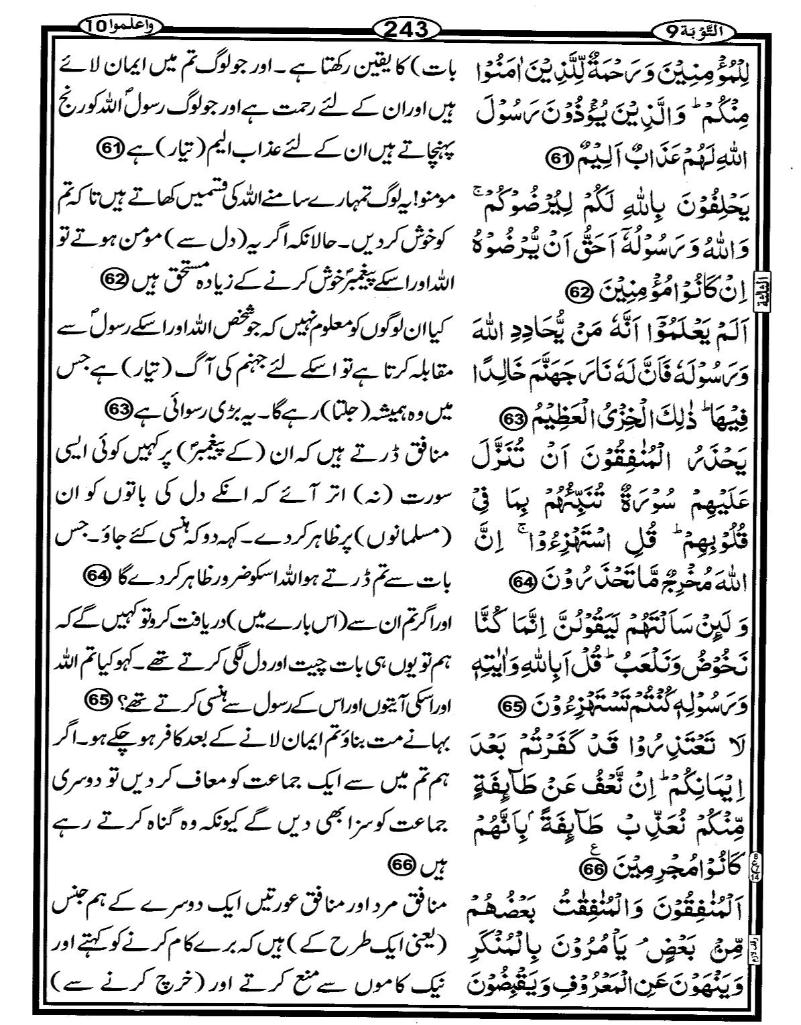 التَّوْبَة 9
243
واعلموا 10
لِلْمُؤْمِنِيْنَ وَرَحْمَةٌ لِّلَّذِيْنَ اٰمَنُوْا
مِنْكُمْ ؕ وَالَّذِيْنَ يُؤْذُوْنَ رَسُوْلَ
اللّٰهِ لَهُمْ عَذَابٌ اَلِيْمٌ 61
يَحْلِفُوْنَ بِاللّٰهِ لَكُمْ لِيُرْضُوْكُمْ ۚ
وَاللّٰهُ وَرَسُوْلُهٗۤ اَحَقُّ اَنْ يُّرْضُوْهُ
اِنْ كَانُوْا مُؤْمِنِيْنَ 62
اَلَمْ يَعْلَمُوْۤا اَنَّهٗ مَنْ يُّحَادِدِ اللّٰهَ
وَرَسُوْلَهٗ فَاَنَّ لَهٗ نَارَ جَهَنَّمَ خَالِدًا
فِيْهَا ؕ ذٰلِكَ الْخِزْىُ الْعَظِيْمُ 63
يَحْذَرُ الْمُنٰفِقُوْنَ اَنْ تُنَزَّلَ
عَلَيْهِمْ سُوْرَةٌ تُنَبِّئُهُمْ بِمَا فِىْ
قُلُوْبِهِمْ ؕ قُلِ اسْتَهْزِءُوْا ۚ اِنَّ
اللّٰهَ مُخْرِجٌ مَّا تَحْذَرُوْنَ 64
وَلَئِنْ سَاَلْتَهُمْ لَيَقُوْلُنَّ اِنَّمَا كُنَّا
نَخُوْضُ وَنَلْعَبُ ؕ قُلْ اَبِاللّٰهِ وَاٰيٰتِهٖ
وَرَسُوْلِهٖ كُنْتُمْ تَسْتَهْزِءُوْنَ 65
لَا تَعْتَذِرُوْا قَدْ كَفَرْتُمْ بَعْدَ
اِيْمَانِكُمْ ؕ اِنْ نَّعْفُ عَنْ طَآئِفَةٍ
مِّنْكُمْ نُعَذِّبْ طَآئِفَةًۢ بِاَنَّهُمْ
كَانُوْا مُجْرِمِيْنَ 66 ع
اَلْمُنٰفِقُوْنَ وَالْمُنٰفِقٰتُ بَعْضُهُمْ
مِّنْۢ بَعْضٍ ۘ يَاْمُرُوْنَ بِالْمُنْكَرِ
وَيَنْهَوْنَ عَنِ الْمَعْرُوْفِ وَيَقْبِضُوْنَ
بات) کا یقین رکھتا ہے۔ اور جو لوگ تم میں ایمان لائے
ہیں اور ان کے لئے رحمت ہے اور جو لوگ رسولؐ اللہ کو رنج
پہنچاتے ہیں ان کے لئے عذاب الیم (تیار) ہے 61
مومنو! یہ لوگ تمہارے سامنے اللہ کی قسمیں کھاتے ہیں تاکہ تم
کو خوش کر دیں۔ حالانکہ اگر یہ (دل سے) مومن ہوتے تو
اللہ اور اسکے پیغمبرؐ خوش کرنے کے زیادہ مستحق ہیں 62
کیا ان لوگوں کو معلوم نہیں کہ جو شخص اللہ اور اسکے رسولؐ سے
مقابلہ کرتا ہے تو اسکے لئے جہنم کی آگ (تیار) ہے جس
میں وہ ہمیشہ (جلتا) رہے گا۔ یہ بڑی رسوائی ہے 63
منافق ڈرتے ہیں کہ ان (کے پیغمبرؐ) پر کہیں کوئی ایسی
سورت (نہ) اتر آئے کہ انکے دل کی باتوں کو ان
(مسلمانوں) پر ظاہر کر دے۔ کہہ دو کہ ہنسی کئے جاؤ۔ جس
بات سے تم ڈرتے ہو اللہ اسکو ضرور ظاہر کر دے گا 64
اور اگر تم ان سے (اس بارے میں) دریافت کرو تو کہیں گے کہ
ہم تو یوں ہی بات چیت اور دل لگی کرتے تھے۔ کہو کیا تم اللہ
اور اسکی آیتوں اور اس کے رسول سے ہنسی کرتے تھے؟ 65
بہانے مت بناؤ تم ایمان لانے کے بعد کافر ہو چکے ہو۔ اگر
ہم تم میں سے ایک جماعت کو معاف کر دیں تو دوسری
جماعت کو سزا بھی دیں گے کیونکہ وہ گناہ کرتے رہے
ہیں 66
منافق مرد اور منافق عورتیں ایک دوسرے کے ہم جنس
(یعنی ایک طرح کے) ہیں کہ برے کام کرنے کو کہتے اور
نیک کاموں سے منع کرتے اور (خرچ کرنے سے)
الثلثة
وقف لازم